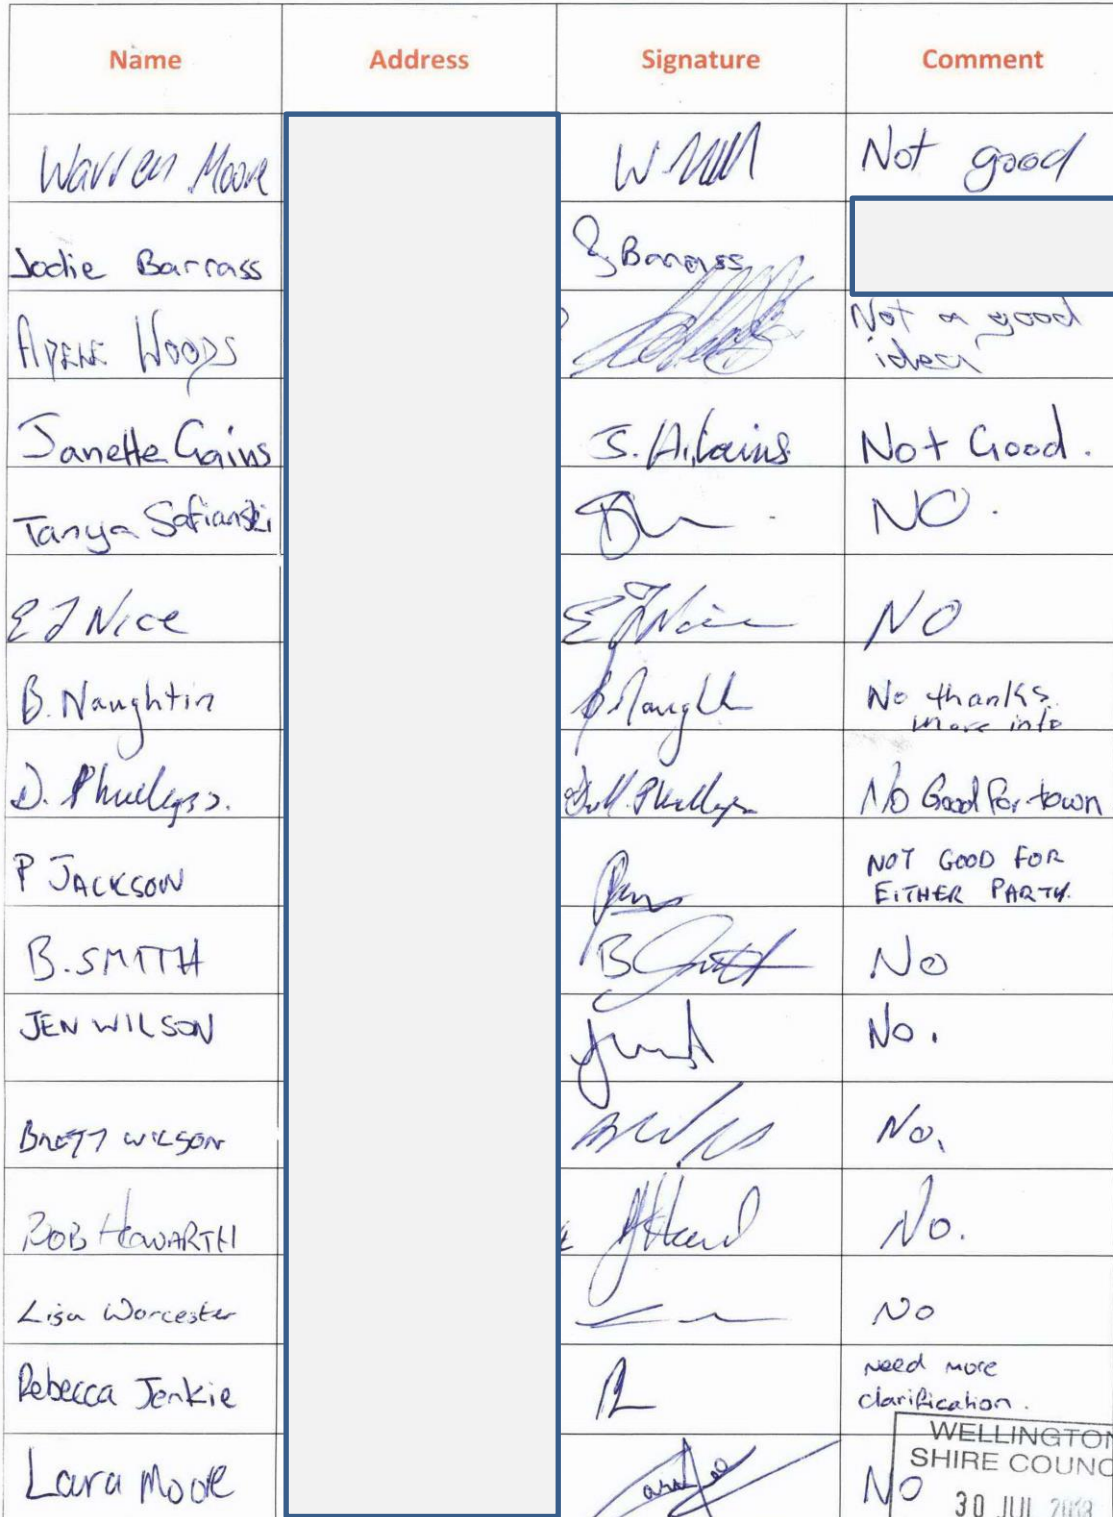 Name Address Signature Comment
Warren Moore W Not good
Jodie Barrass J Barrass
Woods Not a good
idea
Janette Gains J. A. Gains Not Good.
Tanya Sofianski NO.
E J Nice E J Nice NO
B. Naughtin B Naught No thanks
more info
D. Phillips No Good For town
P JACKSON NOT GOOD FOR
EITHER PARTY.
B. SMITH B Smith No
JEN WILSON No.
BRETT WILSON No.
BOB HOWARTH No.
Lisa Worcester No
Rebecca Jenkie need more
clarification.
WELLINGTON
SHIRE COUNC
Lara Moore No
30 JUL